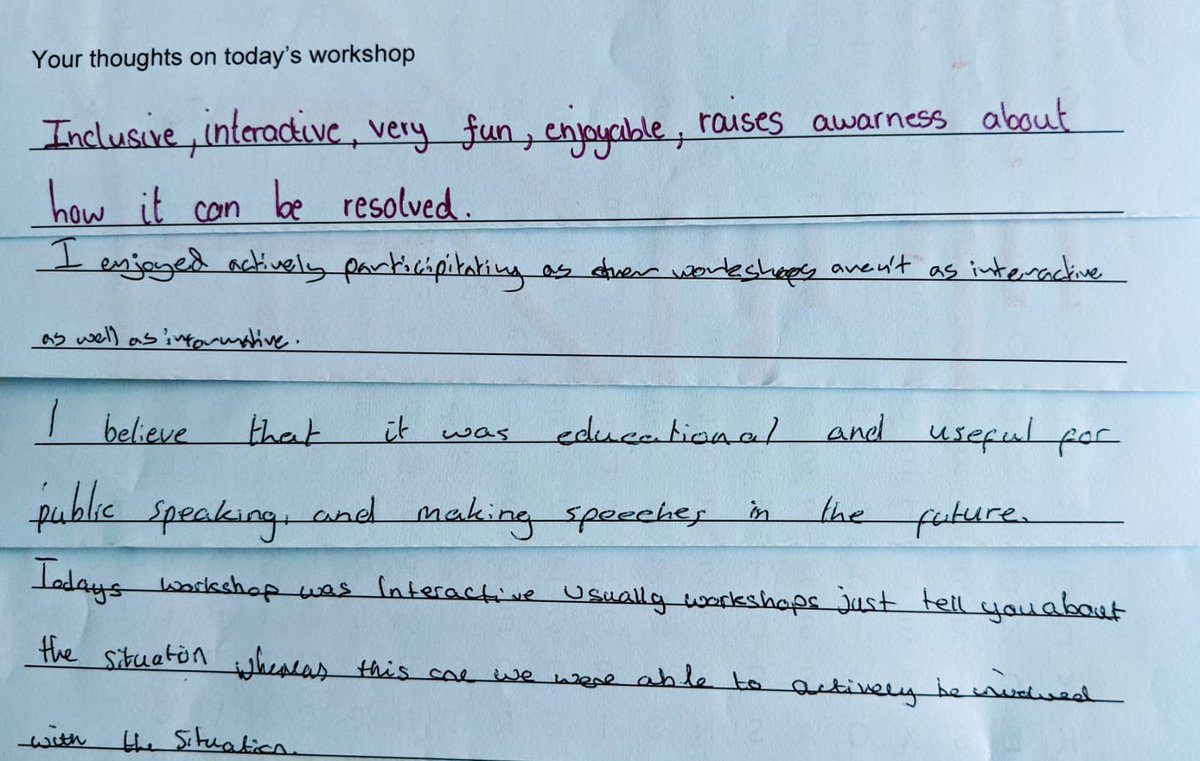 Your thoughts on today's workshop
Inclusive, interactive, very fun, enjoyable, raises awarness about
how it can be resolved.
I enjoyed actively participitating as other workshops aren't as interactive
as well as informative.
I believe that it was educational and useful for
public speaking, and making speeches in the future.
Todays workshop was Interactive Usually workshops just tell you about
the situation whereas this one we were able to actively be involved
with the situation.